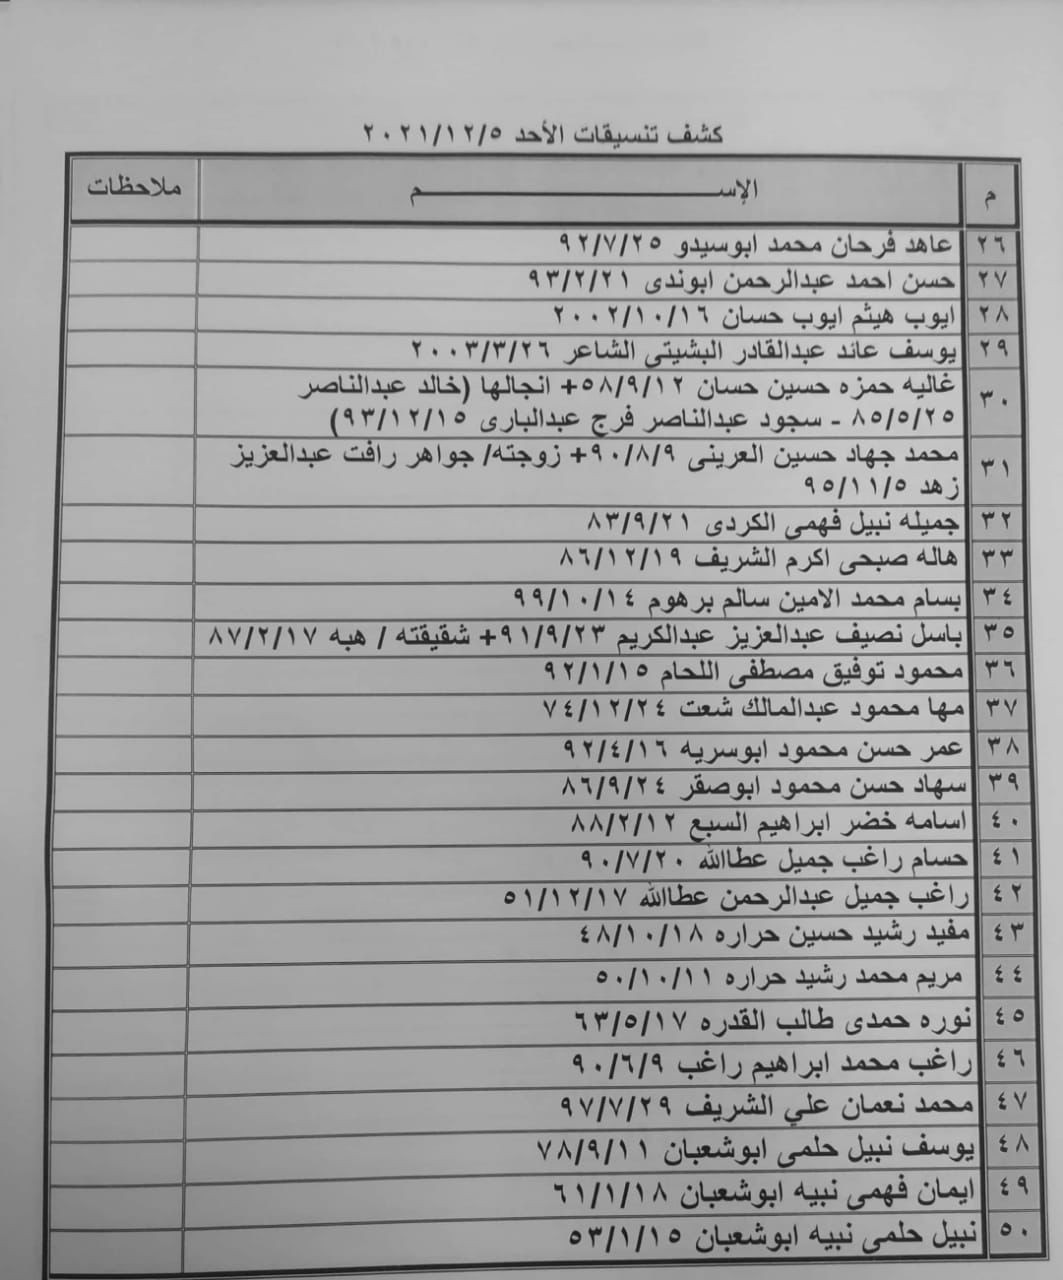 كشف تنسيقات الأحد ٢٠٢١/١٢/٥
م الإســــم ملاحظات
٢٦ عاهد فرحان محمد ابوسيدو ٩٢/٧/٢٥
٢٧ حسن احمد عبدالرحمن ابوندى ٩٣/٢/٢١
٢٨ ايوب هيثم ايوب حسان ٢٠٠٢/١٠/١٦
٢٩ يوسف عائد عبدالقادر البشيتى الشاعر ٢٠٠٣/٣/٢٦
٣٠ غاليه حمزه حسين حسان ٥٨/٩/١٢+ انجالها (خالد عبدالناصر
٨٥/٥/٢٥ - سجود عبدالناصر فرج عبدالبارى ٩٣/١٢/١٥)
٣١ محمد جهاد حسين العرينى ٩٠/٨/٩+ زوجته/ جواهر رافت عبدالعزيز
زهد ٩٥/١١/٥
٣٢ جميله نبيل فهمى الكردى ٨٣/٩/٢١
٣٣ هاله صبحى اكرم الشريف ٨٦/١٢/١٩
٣٤ بسام محمد الامين سالم برهوم ٩٩/١٠/١٤
٣٥ باسل نصيف عبدالعزيز عبدالكريم ٩١/٩/٢٣+ شقيقته / هبه ٨٧/٢/١٧
٣٦ محمود توفيق مصطفى اللحام ٩٢/١/١٥
٣٧ مها محمود عبدالمالك شعت ٧٤/١٢/٢٤
٣٨ عمر حسن محمود ابوسريه ٩٢/٤/١٦
٣٩ سهاد حسن محمود ابوصقر ٨٦/٩/٢٤
٤٠ اسامه خضر ابراهيم السبع ٨٨/٢/١٢
٤١ حسام راغب جميل عطاالله ٩٠/٧/٢٠
٤٢ راغب جميل عبدالرحمن عطاالله ٥١/١٢/١٧
٤٣ مفيد رشيد حسين حراره ٤٨/١٠/١٨
٤٤ مريم محمد رشيد حراره ٥٠/١٠/١١
٤٥ نوره حمدى طالب القدره ٦٣/٥/١٧
٤٦ راغب محمد ابراهيم راغب ٩٠/٦/٩
٤٧ محمد نعمان علي الشريف ٩٧/٧/٢٩
٤٨ يوسف نبيل حلمى ابوشعبان ٧٨/٩/١١
٤٩ ايمان فهمى نبيه ابوشعبان ٦١/١/١٨
٥٠ نبيل حلمى نبيه ابوشعبان ٥٣/١/١٥